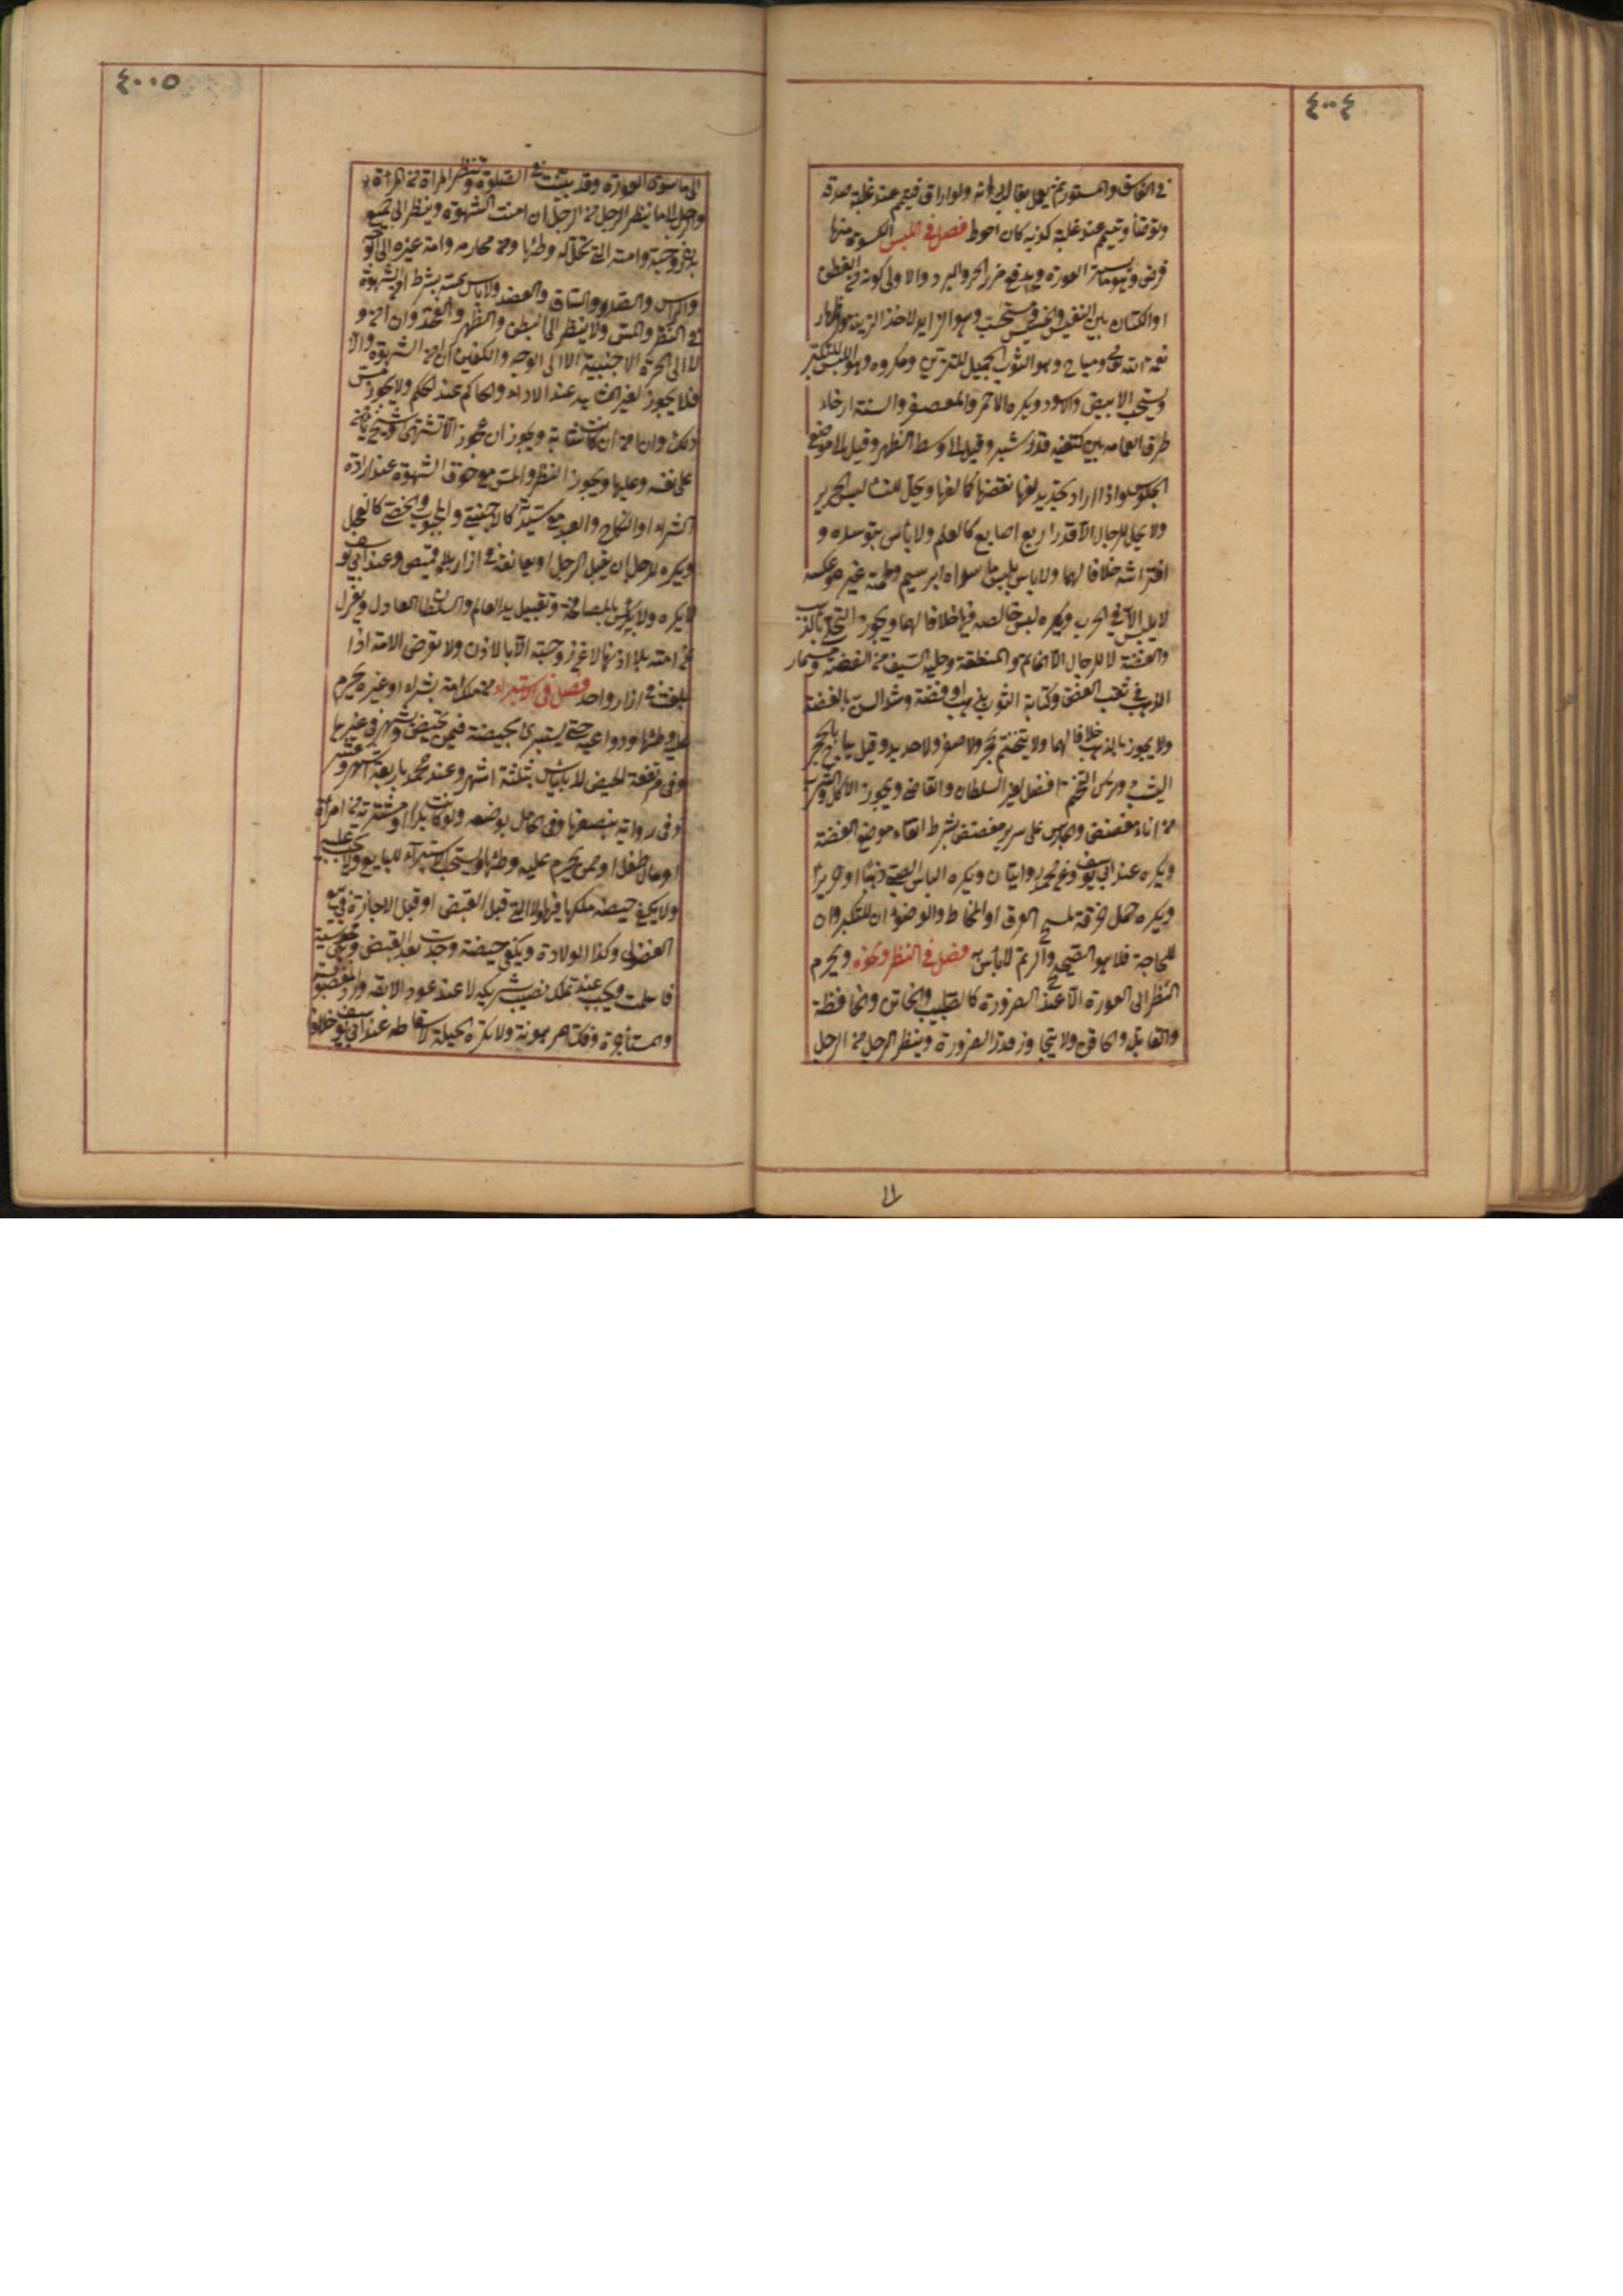 ٤٠٠٤
في الفاسق والمستور ثم يعمل بغالب رأيه ولو اراق فتيمم عند غلبة صدقه
وتوضأ وتيمم عند غلبة كذبه كان احوط فصل في اللبس الكسوة منها
فرض وهو ما يستر العورة ويدفع ضرر الحر والبرد والاولى كونه من القطن
او الكتان بين النفيس والخسيس ومستحب وهو الزايد لاخذ الزينة واظهار
نعمة الله تعالى ومباح وهو الثوب الجميل للتزين ومكروه وهو اللبس للتكبر
ويستحب الابيض والاسود ويكره الاحمر والمعصفر والسنة ارخاء
طرف العمامة بين كتفيه قدر شبر وقيل الى وسط الظهر وقيل الى موضع
الجلوس واذا اراد تجديد لفها نقضها كما لفها ويحل للنساء لبس الحرير
ولا يحل للرجال الا قدر اربع اصابع كالعلم ولا بأس بتوسده و
افتراشه خلافا لهما ولا باس بلبس ما سداه ابريسم ولحمته غيره وعكسه
لا يلبس الا في الحرب ويكره لبس خالصه فيها خلافا لهما ويجوز التحلي بالذهب
والفضة لا للرجال الا الخاتم والمنطقة وحلية السيف من الفضة ومسمار
الذهب في ثقب الفص وكتابة الثوب بذهب او فضة وشد السن بالفضة
ولا يجوز بالذهب خلافا لهما ولا يتختم بحجر ولا صفر ولا حديد وقيل يباح بالحجر
اليشب وترك التختم افضل لغير السلطان والقاضي ويجوز الاكل والشرب
من اناء مفضض والجلوس على سرير مفضض بشرط اتقاء موضع الفضة
ويكره عند ابي يوسف وعن محمد روايتان ويكره الباس الصبي ذهبا او حريرا
ويكره حمل خرقة لمسح العرق او المخاط والوضوء ان للتكبر وان
للحاجة فلا هو الصحيح والرتم لا بأس به فصل في النظر ونحوه ويحرم
النظر الى العورة الا عند الضرورة كالطبيب والخاتن والخافضة
والقابلة والحاقن ولا يتجاوز قدر الضرورة وينظر الرجل من الرجل
٤٠٠٥
الى ما سوى العورة وقد بينت في الصلوة وتنظر المراة من المراة
والرجل الى ما ينظر الرجل من الرجل ان امنت الشهوة وينظر الى جميع
بدن زوجته وامته التي تحل له وطئها ومن محارمه وامة غيره الى الوجه
والراس والصدر والساق والعضد ولا باس بمسه بشرط امن الشهوة
في النظر والمس ولا ينظر الى البطن والظهر والفخذ وان امن و
لا الى الحرة الاجنبية الا الى الوجه والكفين ان امن الشهوة والا
فلا يجوز لغير الشاهد عند الاداء والحاكم عند الحكم ولا يجوز مس
ذلك وان امن ان كانت شابة ويجوز ان عجوزا لا تشتهى او شيخ يامن
على نفسه وعليها ويجوز النظر والمس مع خوف الشهوة عند ارادة
الشراء او النكاح والعبد مع سيدته كالاجنبي والمجبوب والخصي كالفحل
ويكره للرجل ان يقبل الرجل او يعانقه في ازار بلا قميص وعند ابي يوسف
لا يكره ولا باس بالمصافحة وتقبيل يد العالم والسلطان العادل ويعزل
عن امته بلا اذنها لا عن زوجته الا بالاذن ولا تعرض الامة اذا
بلغت في ازار واحد فصل في الاستبراء من ملك امة بشراء او غيره يحرم
عليه وطئها ودواعيه حتى يستبرئ بحيضة فيمن تحيض وبشهر في غيرها
وفي مرتفعة الحيض لا باياس بثلثة اشهر وعند محمد باربعة اشهر وعشر
وفي رواية بنصفها وفي الحامل بوضعه ولو كانت بكرا او مشترية من امرأة
او مال طفل او ممن يحرم عليه وطئها ويستحب الاستبراء للبايع ولا يجب عليه
ولا يكفي حيضة ملكها فيها ولا التي قبل القبض او قبل الاجازة في بيع
الفضولي وكذا الولادة ويكفي حيضة وجدت بعد القبض وهي مجوسية
فاسلمت ويجب عند تملك نصيب شريكه لا عند عود الابقة ورد المغصوبة
والمستأجرة وفك المرهونة ولا تكره الحيلة لاسقاطه عند ابي يوسف خلافا